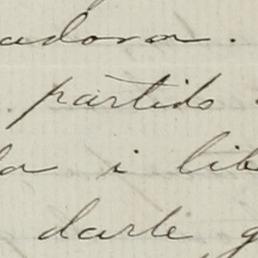 adora.
partido
la i lib
darle g